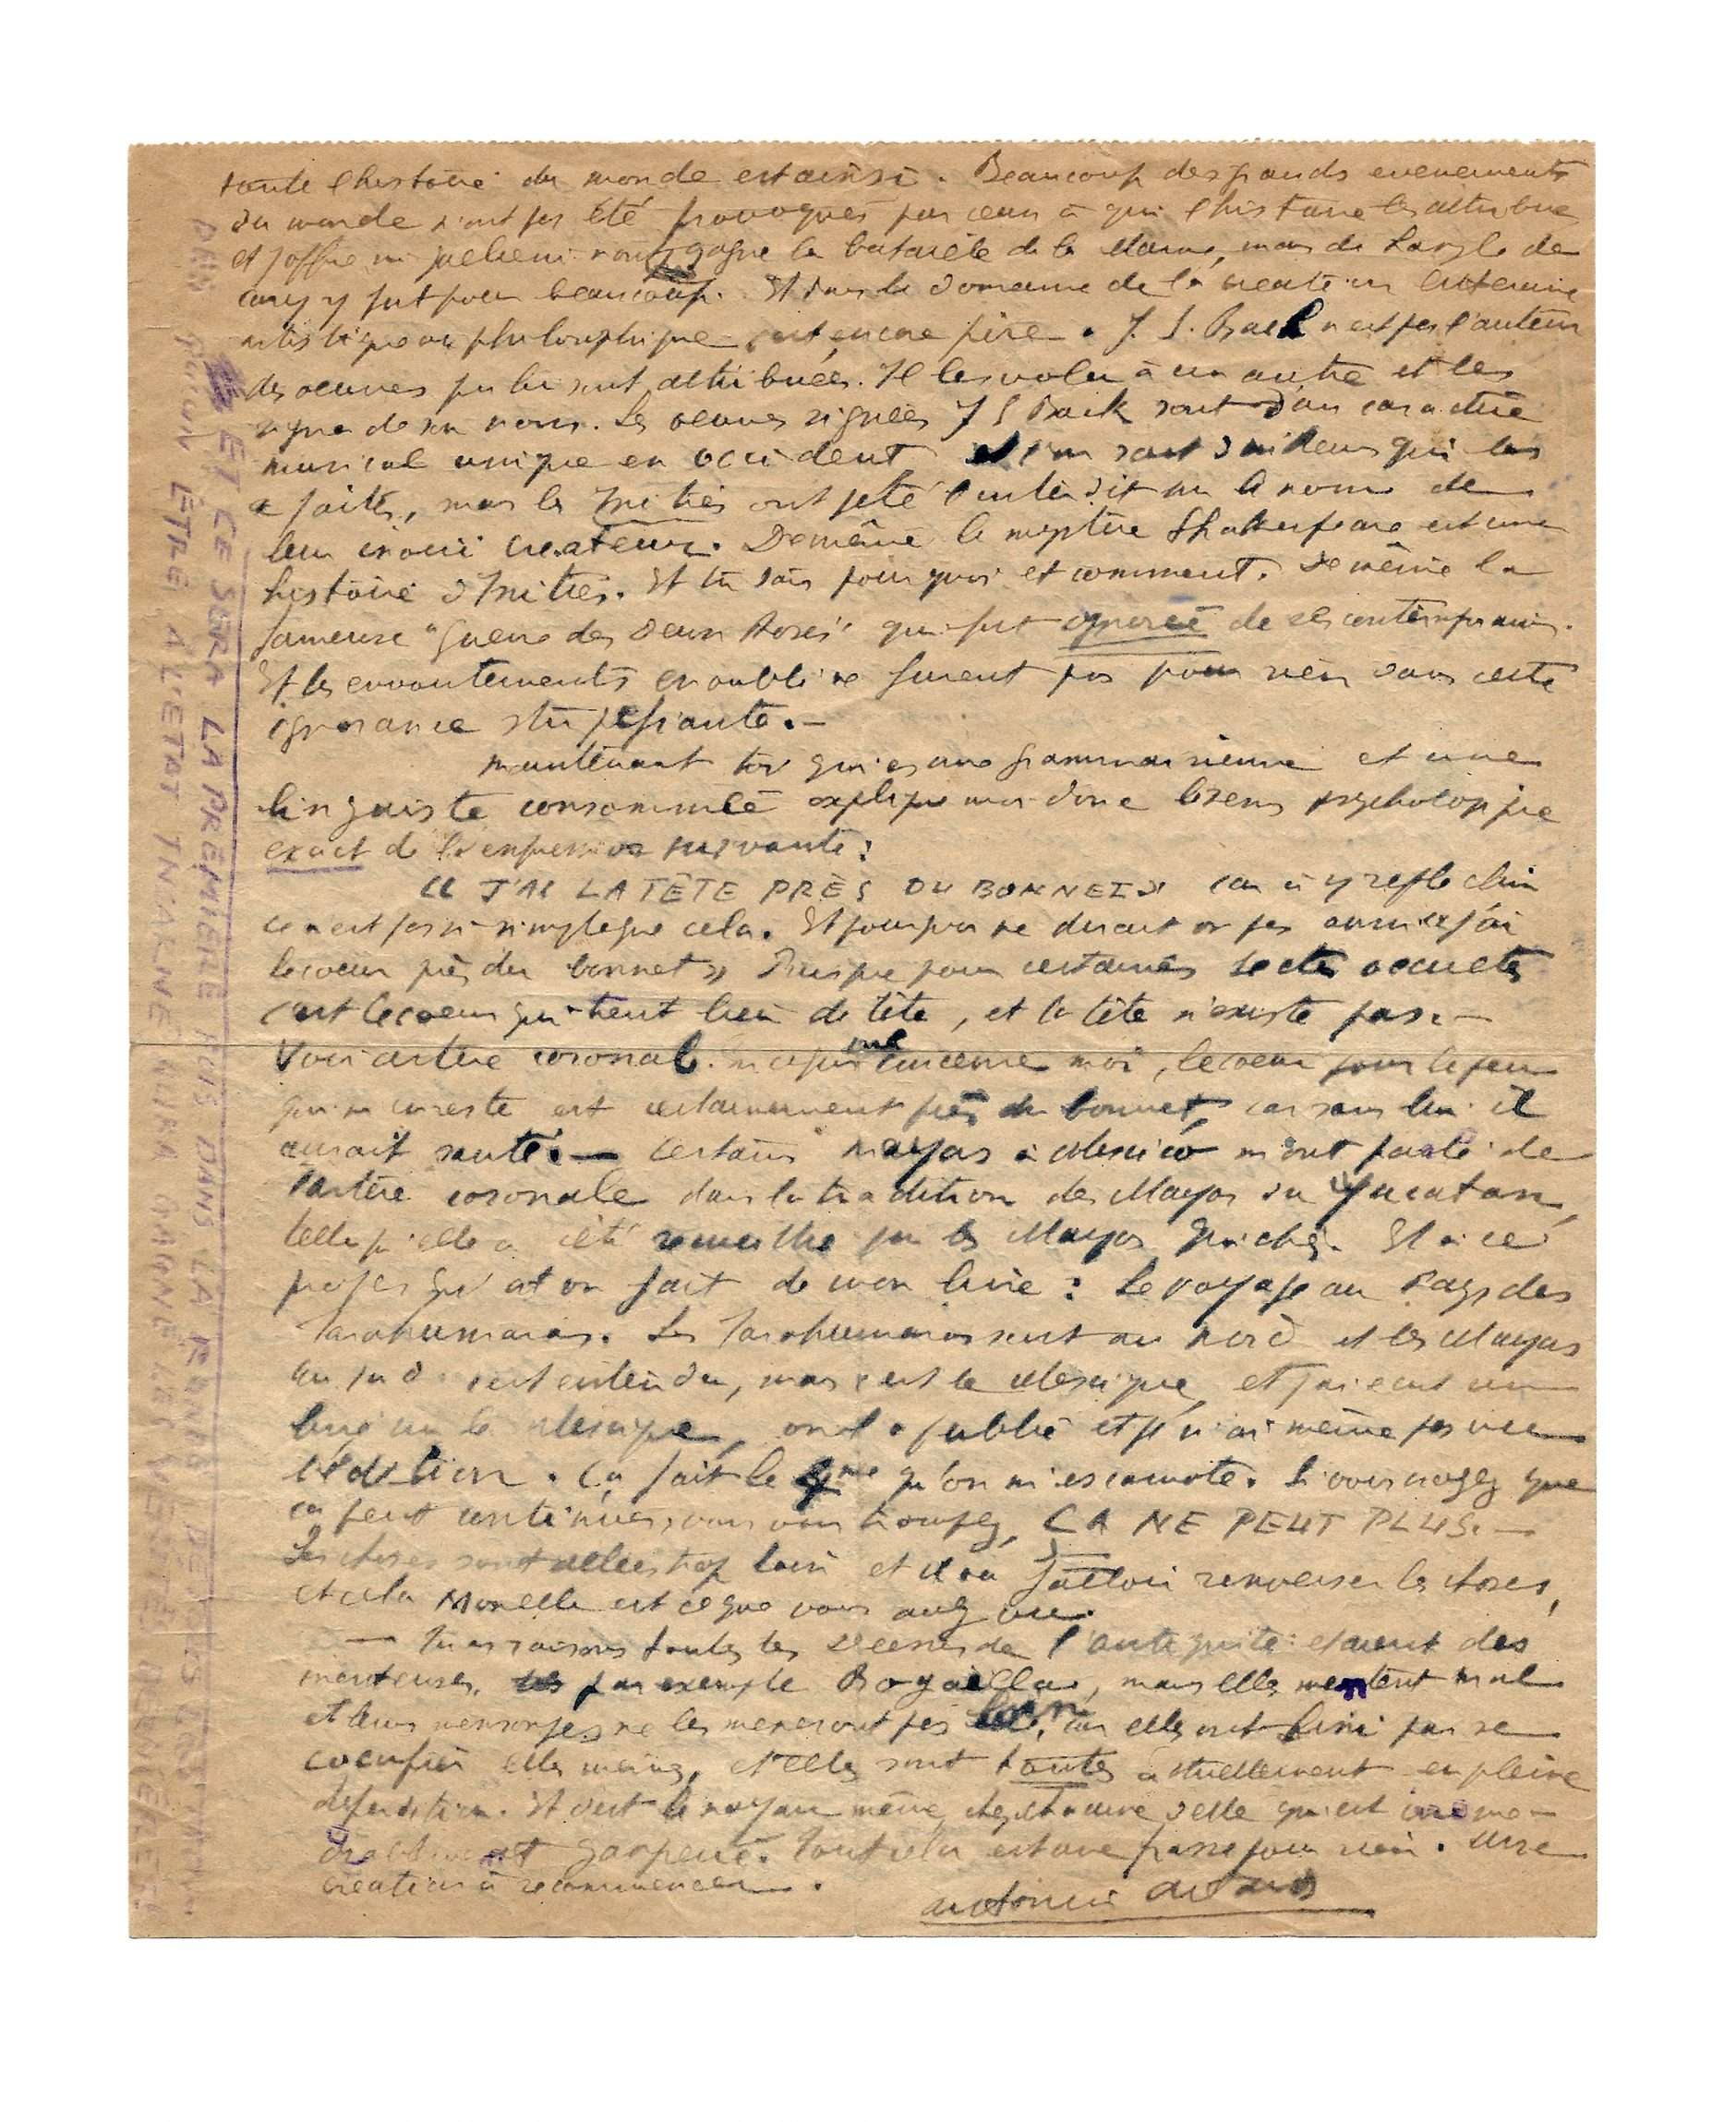 toute l'histoire du monde est ainsi. Beaucoup des grands evenements
du monde n'ont pas été provoqués par ceux à qui l'histoire les attribue
et Joffre ni Gallieni n'ont gagne la bataille de la Marne, mais de Langle de
Cary y fut pour beaucoup. Et dans le domaine de la creation litteraire
artistique ou philosophique c'est encore pire. J. S. Bach n'est pas l'auteur
des oeuvres qui lui sont attribuées. Il les vola à un autre et les
signa de son nom. Les oeuvres signées J S Bach sont d'un caractère
musical unique en occident et sont qui les
a faites, mais les Initiés ont jeté l'interdit sur le nom de
leur inouï createur. De même le mystère Shakespeare est une
histoire d'Initiés. Et tu sais pourquoi et comment. De même la
fameuse "Guerre des Deux Roses" qui fut ignorée de ses contemporains.
Et les envoutements en oubli ne furent pas pour rien dans cette
ignorance stupéfiante. —
maintenant toi qui es une grammairienne et une
linguiste consommée explique moi donc le sens psychologique
exact de l'expression suivante :
« J'AI LA TÊTE PRÈS DU BONNET » car à y reflechir
ce n'est pas si simple que cela. Et pourquoi ne dirait on pas aussi « j'ai
le coeur près du bonnet » Puisque pour certaines sectes occultes
c'est le coeur qui tient lieu de tête, et la tête n'existe pas. —
Voir artère coronale. En ce qui me concerne moi, le coeur pour le peu
qui m'en reste est certainement près du bonnet, car sans lui il
aurait sauté. — Certains mayas à Mexico m'ont parlé de
l'artère coronale dans la tradition des Mayas du Yucatan,
telle qu'elle a été recueillie par les Mayas Quichés. Et à ce
propos qu'at on fait de mon livre : Le voyage au Pays des
Tarahumaras. Les Tarahumaras sont au nord et les Mayas
au sud c'est entendu, mais c'est le Mexique, et j'ai ecrit un
livre sur le Mexique, on l'a publié et je n'ai même pas vu
l'édition. Ca fait le qu'on m'escamote. Si vous croyez que
ca peut continuer, vous vous trompez, ÇA NE PEUT PLUS. —
Les choses sont allées trop loin et il va falloir renverser les choses,
et cela est ce que vous avez vu.
— Tu as raison toutes les Déesses de l'antiquité étaient des
menteuses, par exemple, mais elles mentent mal
et leurs mensonges ne les meneront pas loin, car elles ont fini par se
cocufier elles mêmes, et elles sont toutes actuellement en pleine
Et c'est le noyau même qui est
gaspillé. Tout cela est une passe pour rien. Une
creation à recommencer.
antonin artaud
ET CE SERA LA PREMIÈRE FOIS DANS LA
ÊTRE ALIETAT